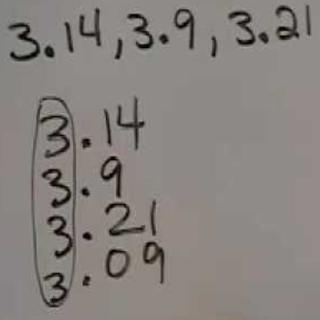 3.14, 3.9, 3.21
3.14
3.9
3.21
3.09